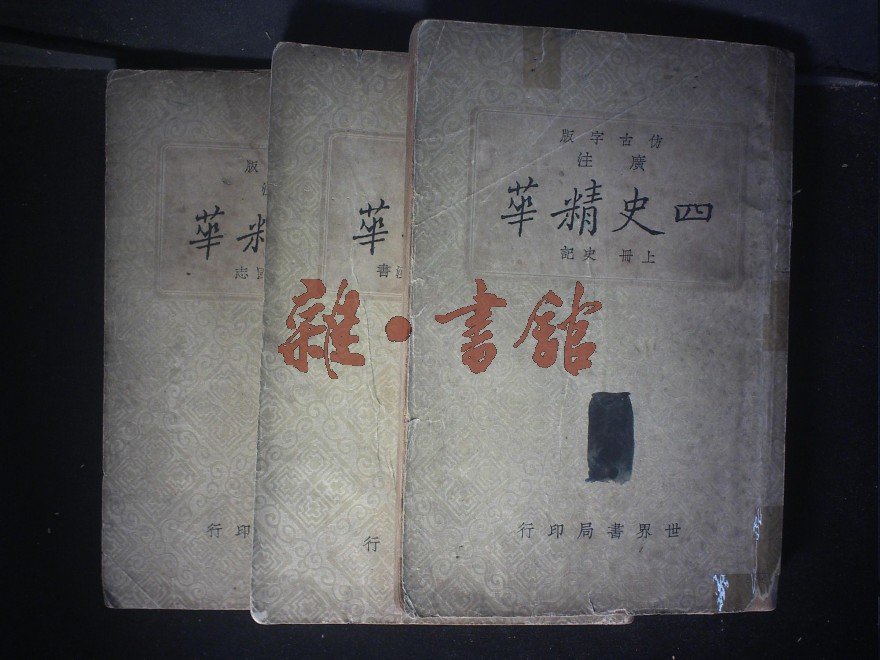 仿古字版
廣注
四史精華
上冊 史記
世界書局印行
華
書
行
版
華
志
印行
雜•書館